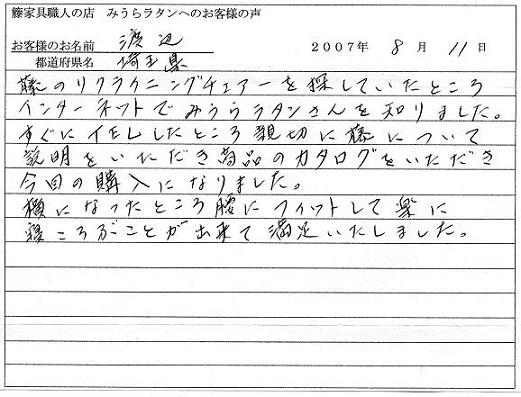 籐家具職人の店　みうらラタンへのお客様の声
お客様のお名前　渡辺
2007年　8月　11日
都道府県名　埼玉県
藤のリクライニングチェアーを探していたところ
インターネットでみうらラタンさんを知りました。
すぐにTELしたところ親切に藤について
説明をいただき商品のカタログをいただき
今回の購入になりました。
横になったところ腰にフィットして楽に
寝ころぶことが出来て満足いたしました。